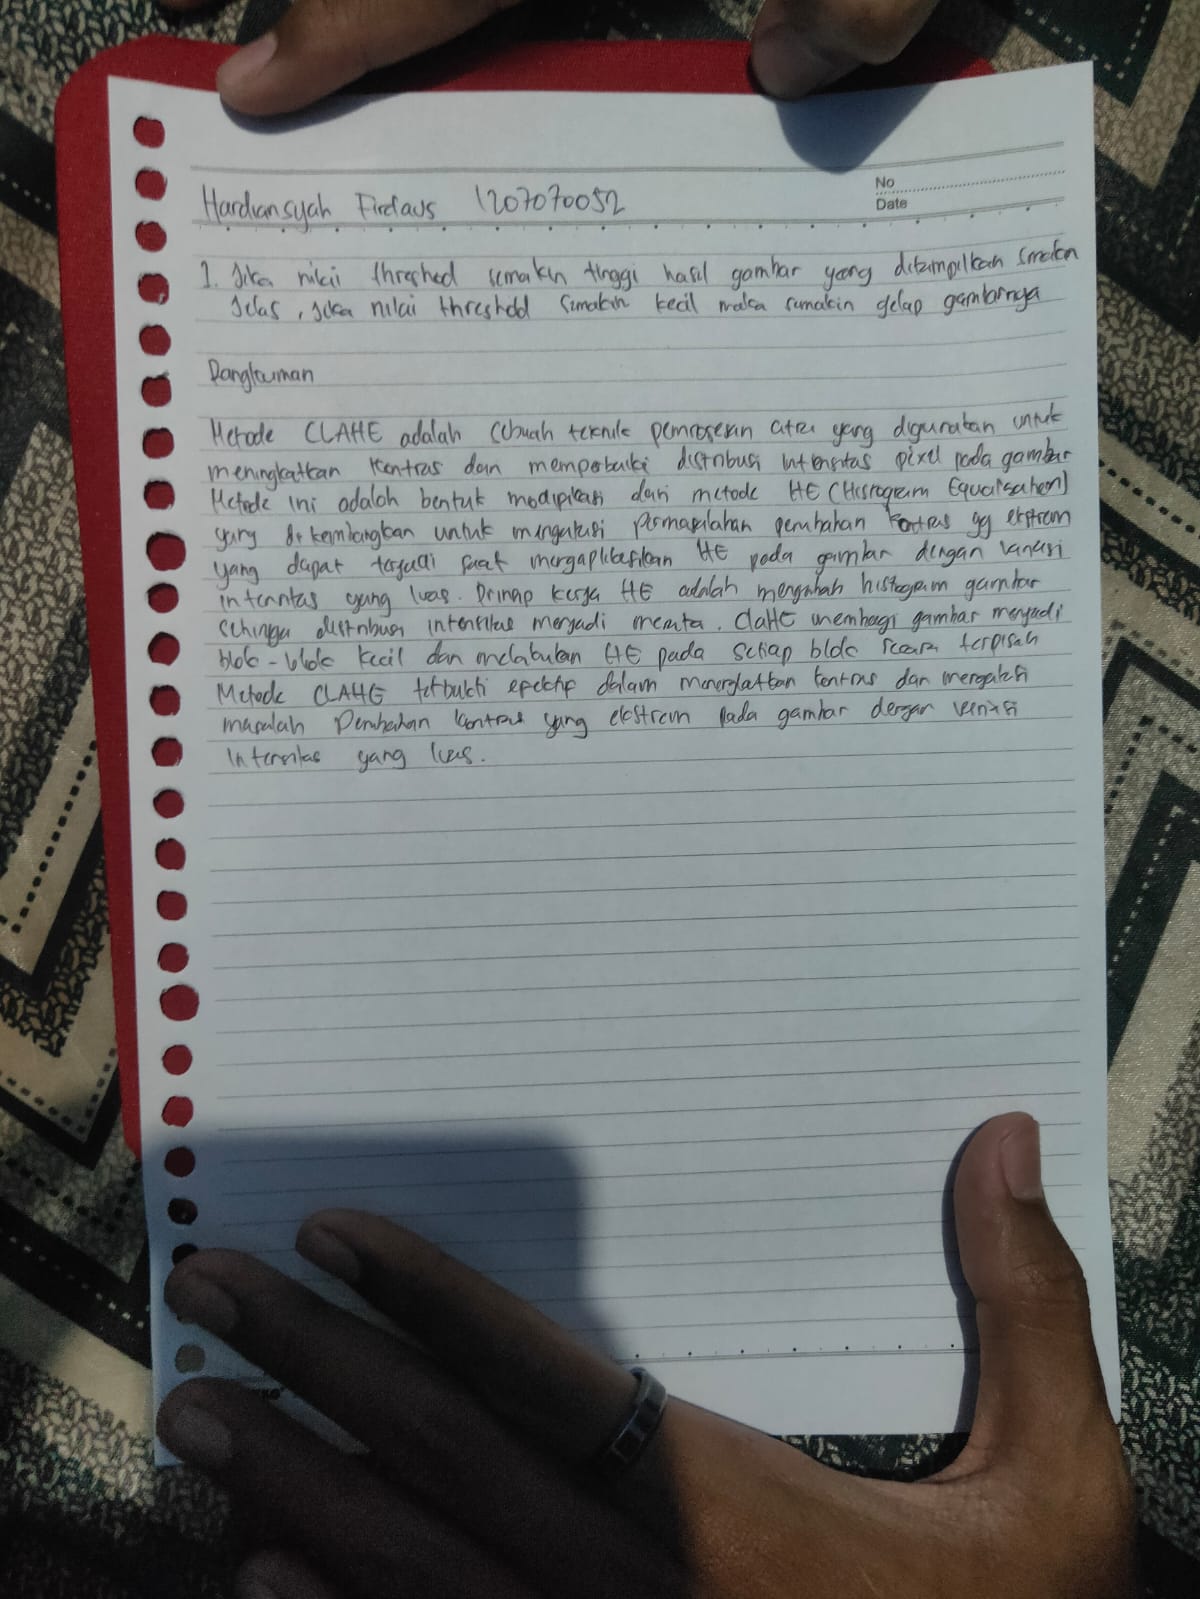 No
Date
Hardiansyah Firdaus 1207070052
1. Jika nilai threshed semakin tinggi hasil gambar yang ditampilkan smakn
Jelas, jika nilai threshold semakin kecil maka semakin gelap gambarnya
Rangkuman
Metode CLAHE adalah sebuah teknik pemrosesan citra yang digunakan untuk
meningkatkan kontras dan memperbaiki distribusi intensitas pixel pada gambar
Metode ini adalah bentuk modipikasi dari metode HE (Histogram Equalisation)
yang di kembangkan untuk mengatasi permasalahan perubahan kontras yg ekstrem
yang dapat terjadi saat mengaplikasikan HE pada gambar dengan variasi
intensitas yang luas. Prinsip kerja HE adalah mengubah histogram gambar
sehingga distribusi intensitas menjadi merata. CLAHE membagi gambar menjadi
blok-blok kecil dan melakukan HE pada setiap blok secara terpisah
Metode CLAHE terbukti epektip dalam meningkatkan kontras dan mengatasi
masalah perubahan kontras yang ekstrem pada gambar dengan variasi
intensitas yang luas.